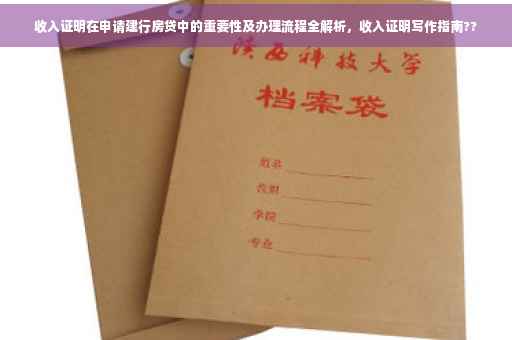 收入证明在申请建行房贷中的重要性及办理流程全解析，收入证明写作指南??
陕西科技大学
档案袋
姓名
性别
学院
专业